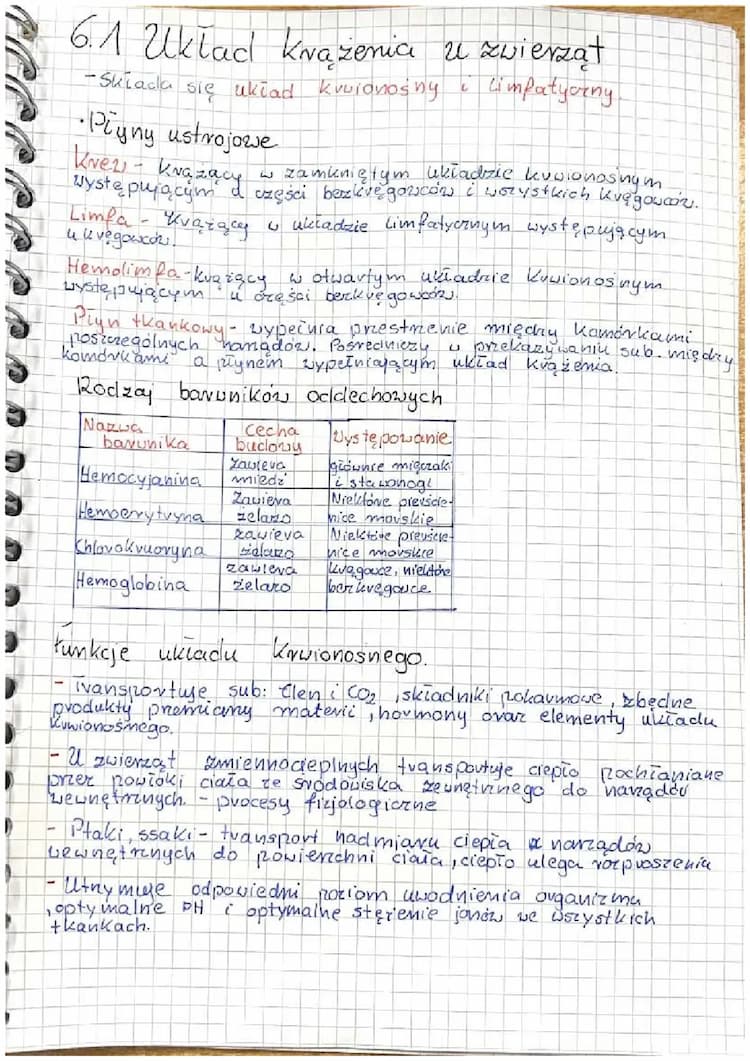 6.1 Układ krążenia u zwierząt
- Składa się układ krwionośny i limfatyczny.
• Płyny ustrojowe
Krew - krążący w zamkniętym układzie krwionośnym
występującym u części bezkręgowców i wszystkich kręgowców.
Limfa - krążący w układzie limfatycznym występującym
u kręgowców.
Hemolimfa - krążący w otwartym układzie krwionośnym
występującym u części bezkręgowców.
Płyn tkankowy - wypełnia przestrzenie między komórkami
poszczególnych narządów. Pośredniczy w przekazywaniu sub. między
komórkami a płynem wypełniającym układ krążenia.
Rodzaj barwników oddechowych
Nazwa barwnika | Cecha budowy | Występowanie
Hemocyjanina | Zawiera miedź | głównie mięczaki i stawonogi
Hemoerytryna | Zawiera żelazo | Niektóre pierścienice morskie
Chlorokruoryna | zawiera żelazo | Niektóre pierścienice morskie
Hemoglobina | zawiera żelazo | kręgowce, niektóre bezkręgowce
Funkcje układu krwionosnego.
- Transportuje sub: tlen i CO₂, składniki pokarmowe, zbędne
produkty przemiany materii, hormony oraz elementy układu
krwionośnego.
- U zwierząt zmiennocieplnych transportuje ciepło pochłaniane
przez powłoki ciała ze środowiska zewnętrznego do narządów
wewnętrznych. - procesy fizjologiczne
- Ptaki, ssaki - transport nadmiaru ciepła z narządów
wewnętrznych do powierzchni ciała, ciepło ulega rozproszeniu
- Utrzymuje odpowiedni poziom uwodnienia organizmu
, optymalne pH i optymalne stężenie jonów we wszystkich
tkankach.